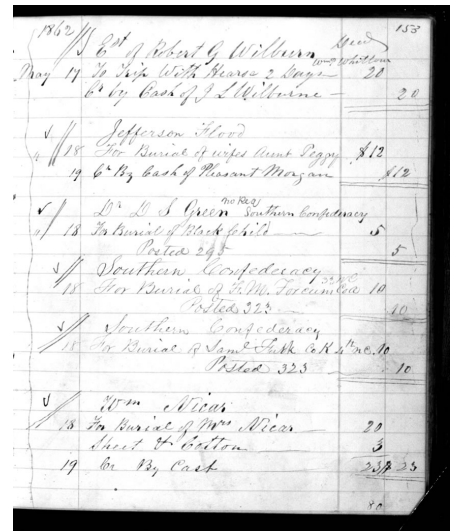 1862 153
Est of Robert G Wilburn Decd
May 17 To Trip With Hearse 2 Days 20
Cr by Cash of J L Wilburne 20
Jefferson Flood
18 For Burial of wifes Aunt Peggy $12
19 Cr By Cash of Pleasant Morgan $12
no Reg
Dr D S Green Southern Confederacy
18 For Burial of Black Child 5
Posted 295 5
Southern Confederacy
18 For Burial of F. M. 10
Posted 323 10
Southern Confederacy
18 For Burial of Saml Co K 4th N.C. 10
Posted 323 10
Wm Nicar
18 For Burial of Mrs Nicar 20
Sheet & Cotton 3
19 Cr By Cash 23 23
80